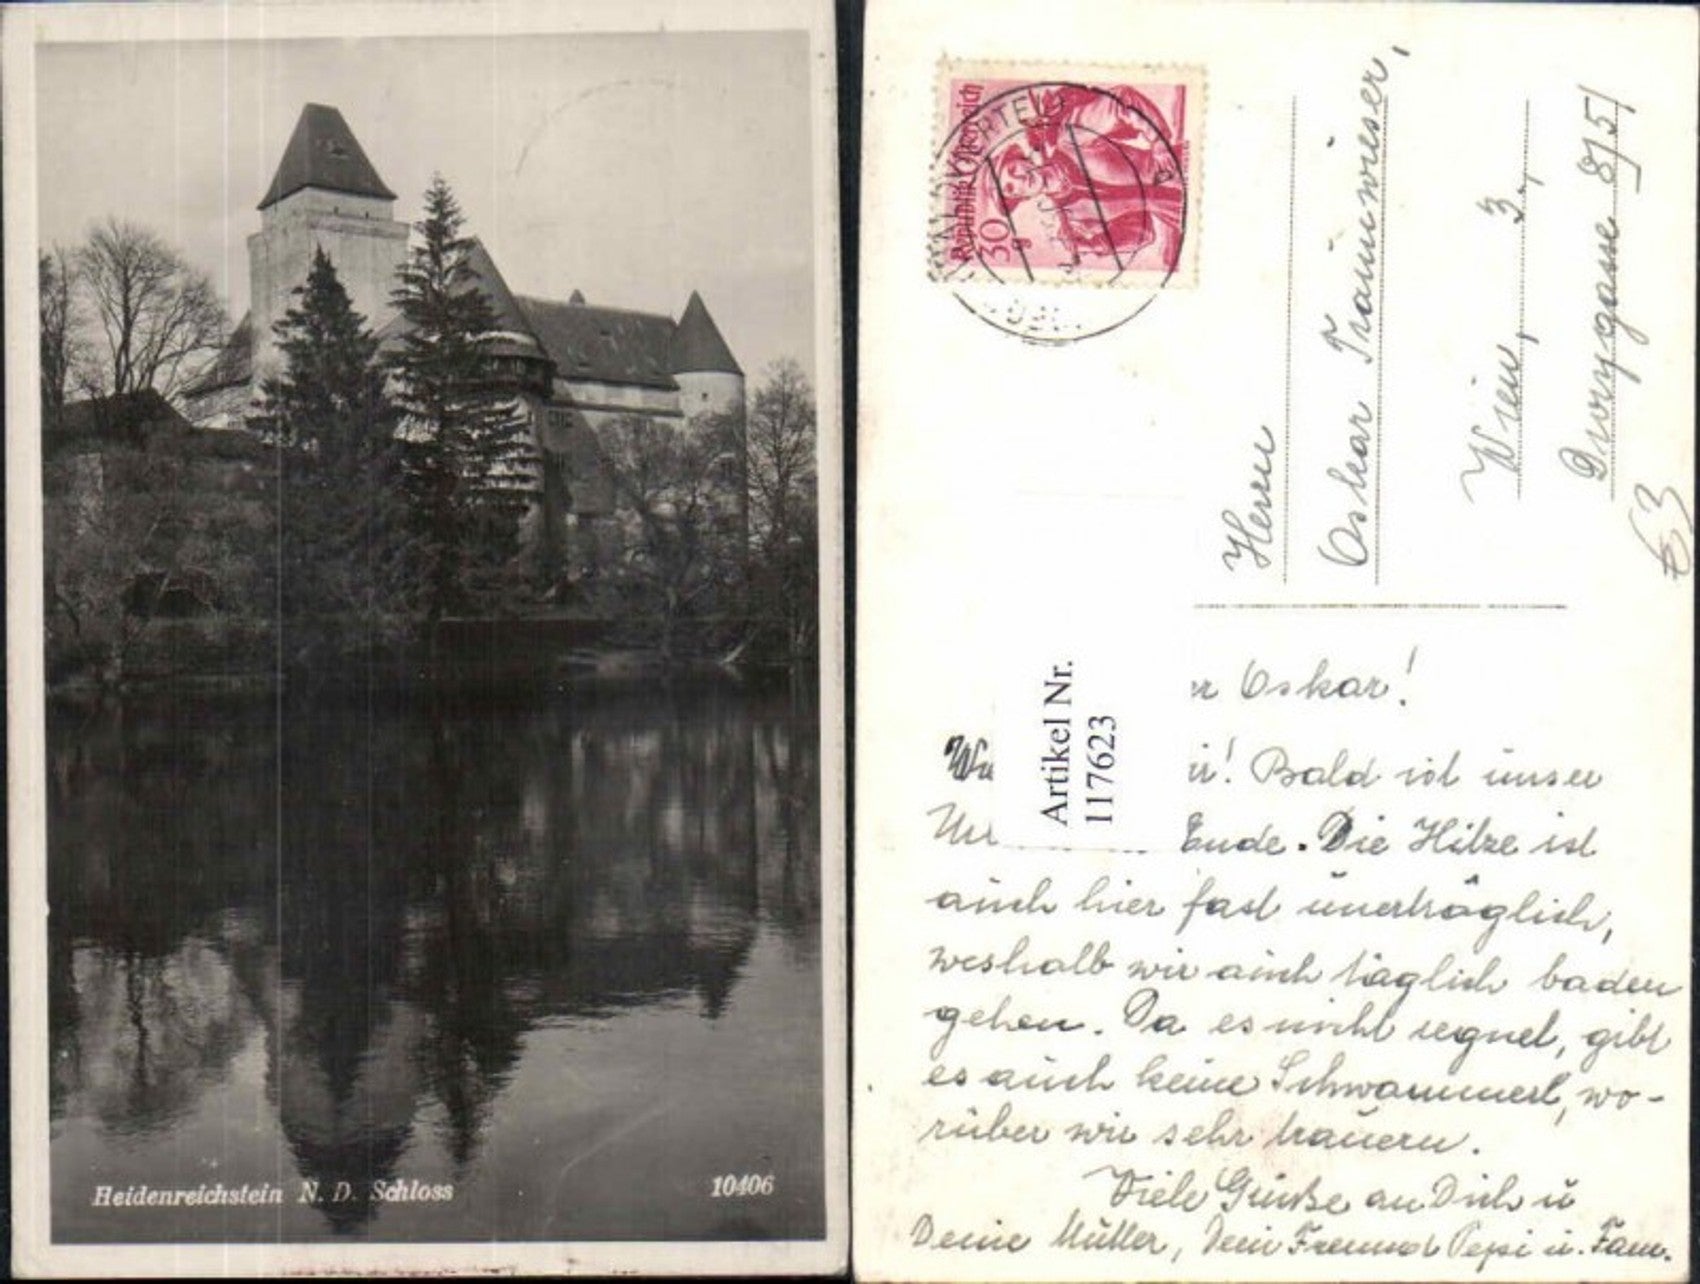 Heidenreichstein N. D. Schloss
10406
Republik Österreich
30 g
Herrn
Oskar Traunwieser,
Wien, 3.,
Dvorygasse 8/5/
€3
Artikel Nr.
1177623
Oskar!
Bald ist unser
Ende. Die Hitze ist
auch hier fast unerträglich,
weshalb wir auch täglich baden
gehen. Da es nicht regnet, gibt
es auch keine Schwammerl, wo-
rüber wir sehr trauern.
Viele Grüße an Dich u
Deine Mutter, Dein Freund Pepi u. Fam.